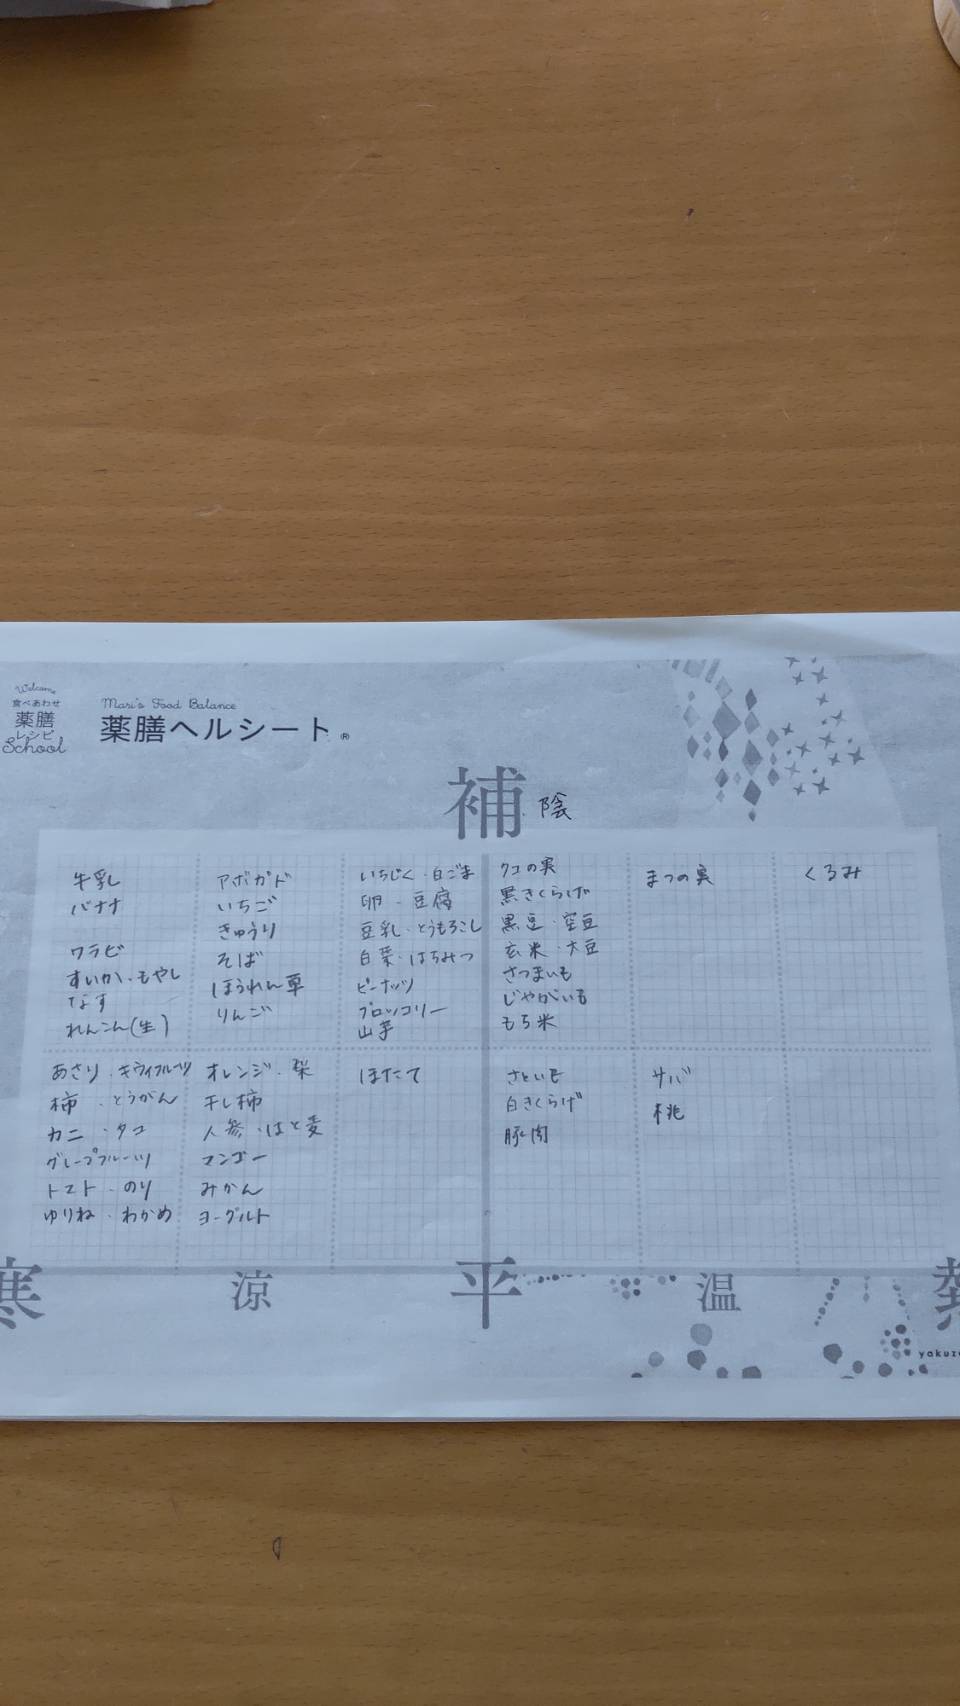 Welcome
食べあわせ
薬膳
レシピ
School
Mari's Food Balance
薬膳ヘルシート®
補 陰
牛乳
バナナ
ワラビ
すいか・もやし
なす
れんこん(生)
アボガド
いちご
きゅうり
そば
ほうれん草
りんご
いちじく・白ごま
卵・豆腐
豆乳・とうもろこし
白菜・はちみつ
ピーナッツ
ブロッコリー
山芋
クコの実
黒きくらげ
黒豆・空豆
玄米・大豆
さつまいも
じゃがいも
もち米
まつの実
くるみ
あさり・キウイフルーツ
柿・とうがん
カニ・タコ
グレープフルーツ
トマト・のり
ゆりね・わかめ
オレンジ・梨
干し柿
人参・はと麦
マンゴー
みかん
ヨーグルト
ほたて
さといも
白きくらげ
豚肉
サバ
桃
寒 涼 平 温 熱
yakuz